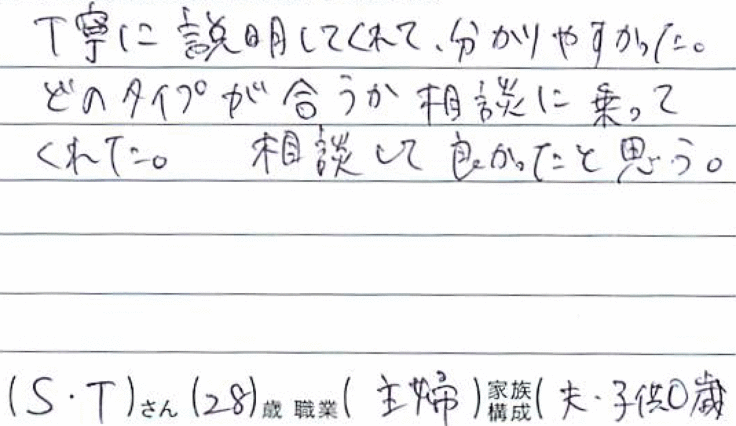 丁寧に説明してくれて、分かりやすかった。
どのタイプが合うか相談に乗って
くれた。 相談して良かったと思う。
(S・T)さん (28)歳 職業(主婦)家族構成(夫・子供0歳